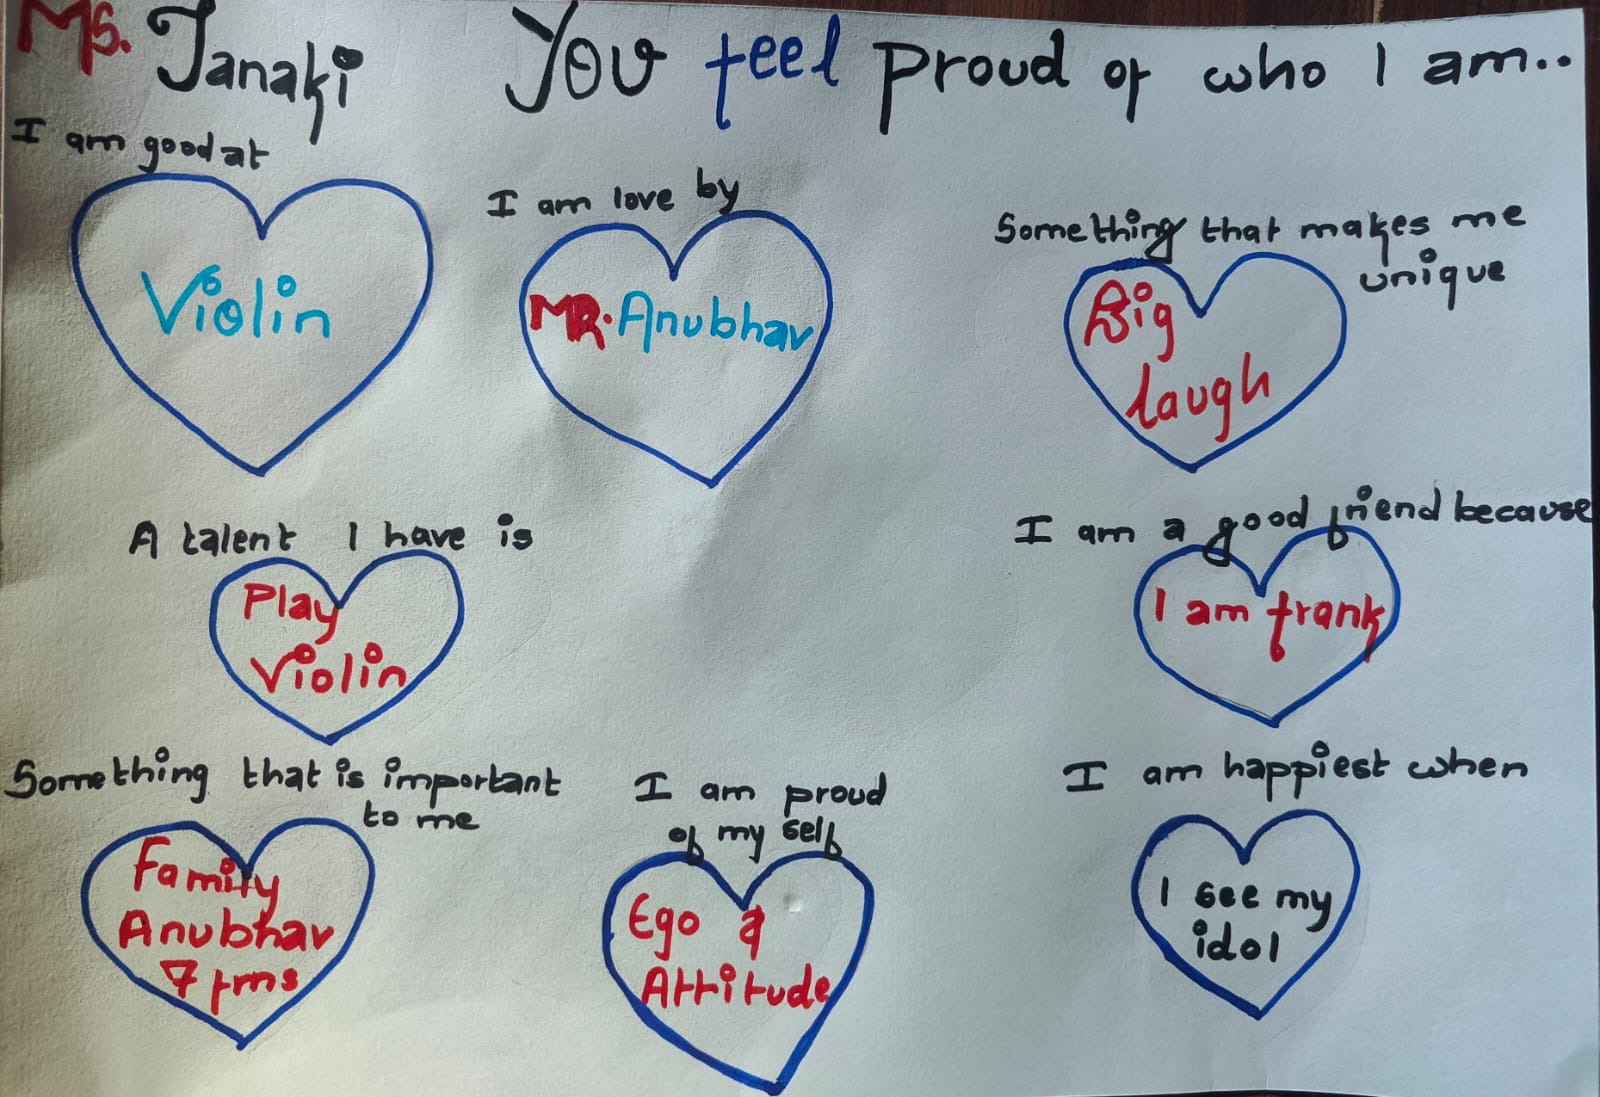 Ms. Janaki You feel proud of who I am..
I am good at
Violin
I am love by
MR. Anubhav
Something that makes me
unique
Big
laugh
A talent I have is
Play
Violin
I am a good friend because
I am frank
Something that is important
to me
Family
Anubhav
7 fms
I am proud
of my self
Ego &
Attitude
I am happiest when
I see my
idol